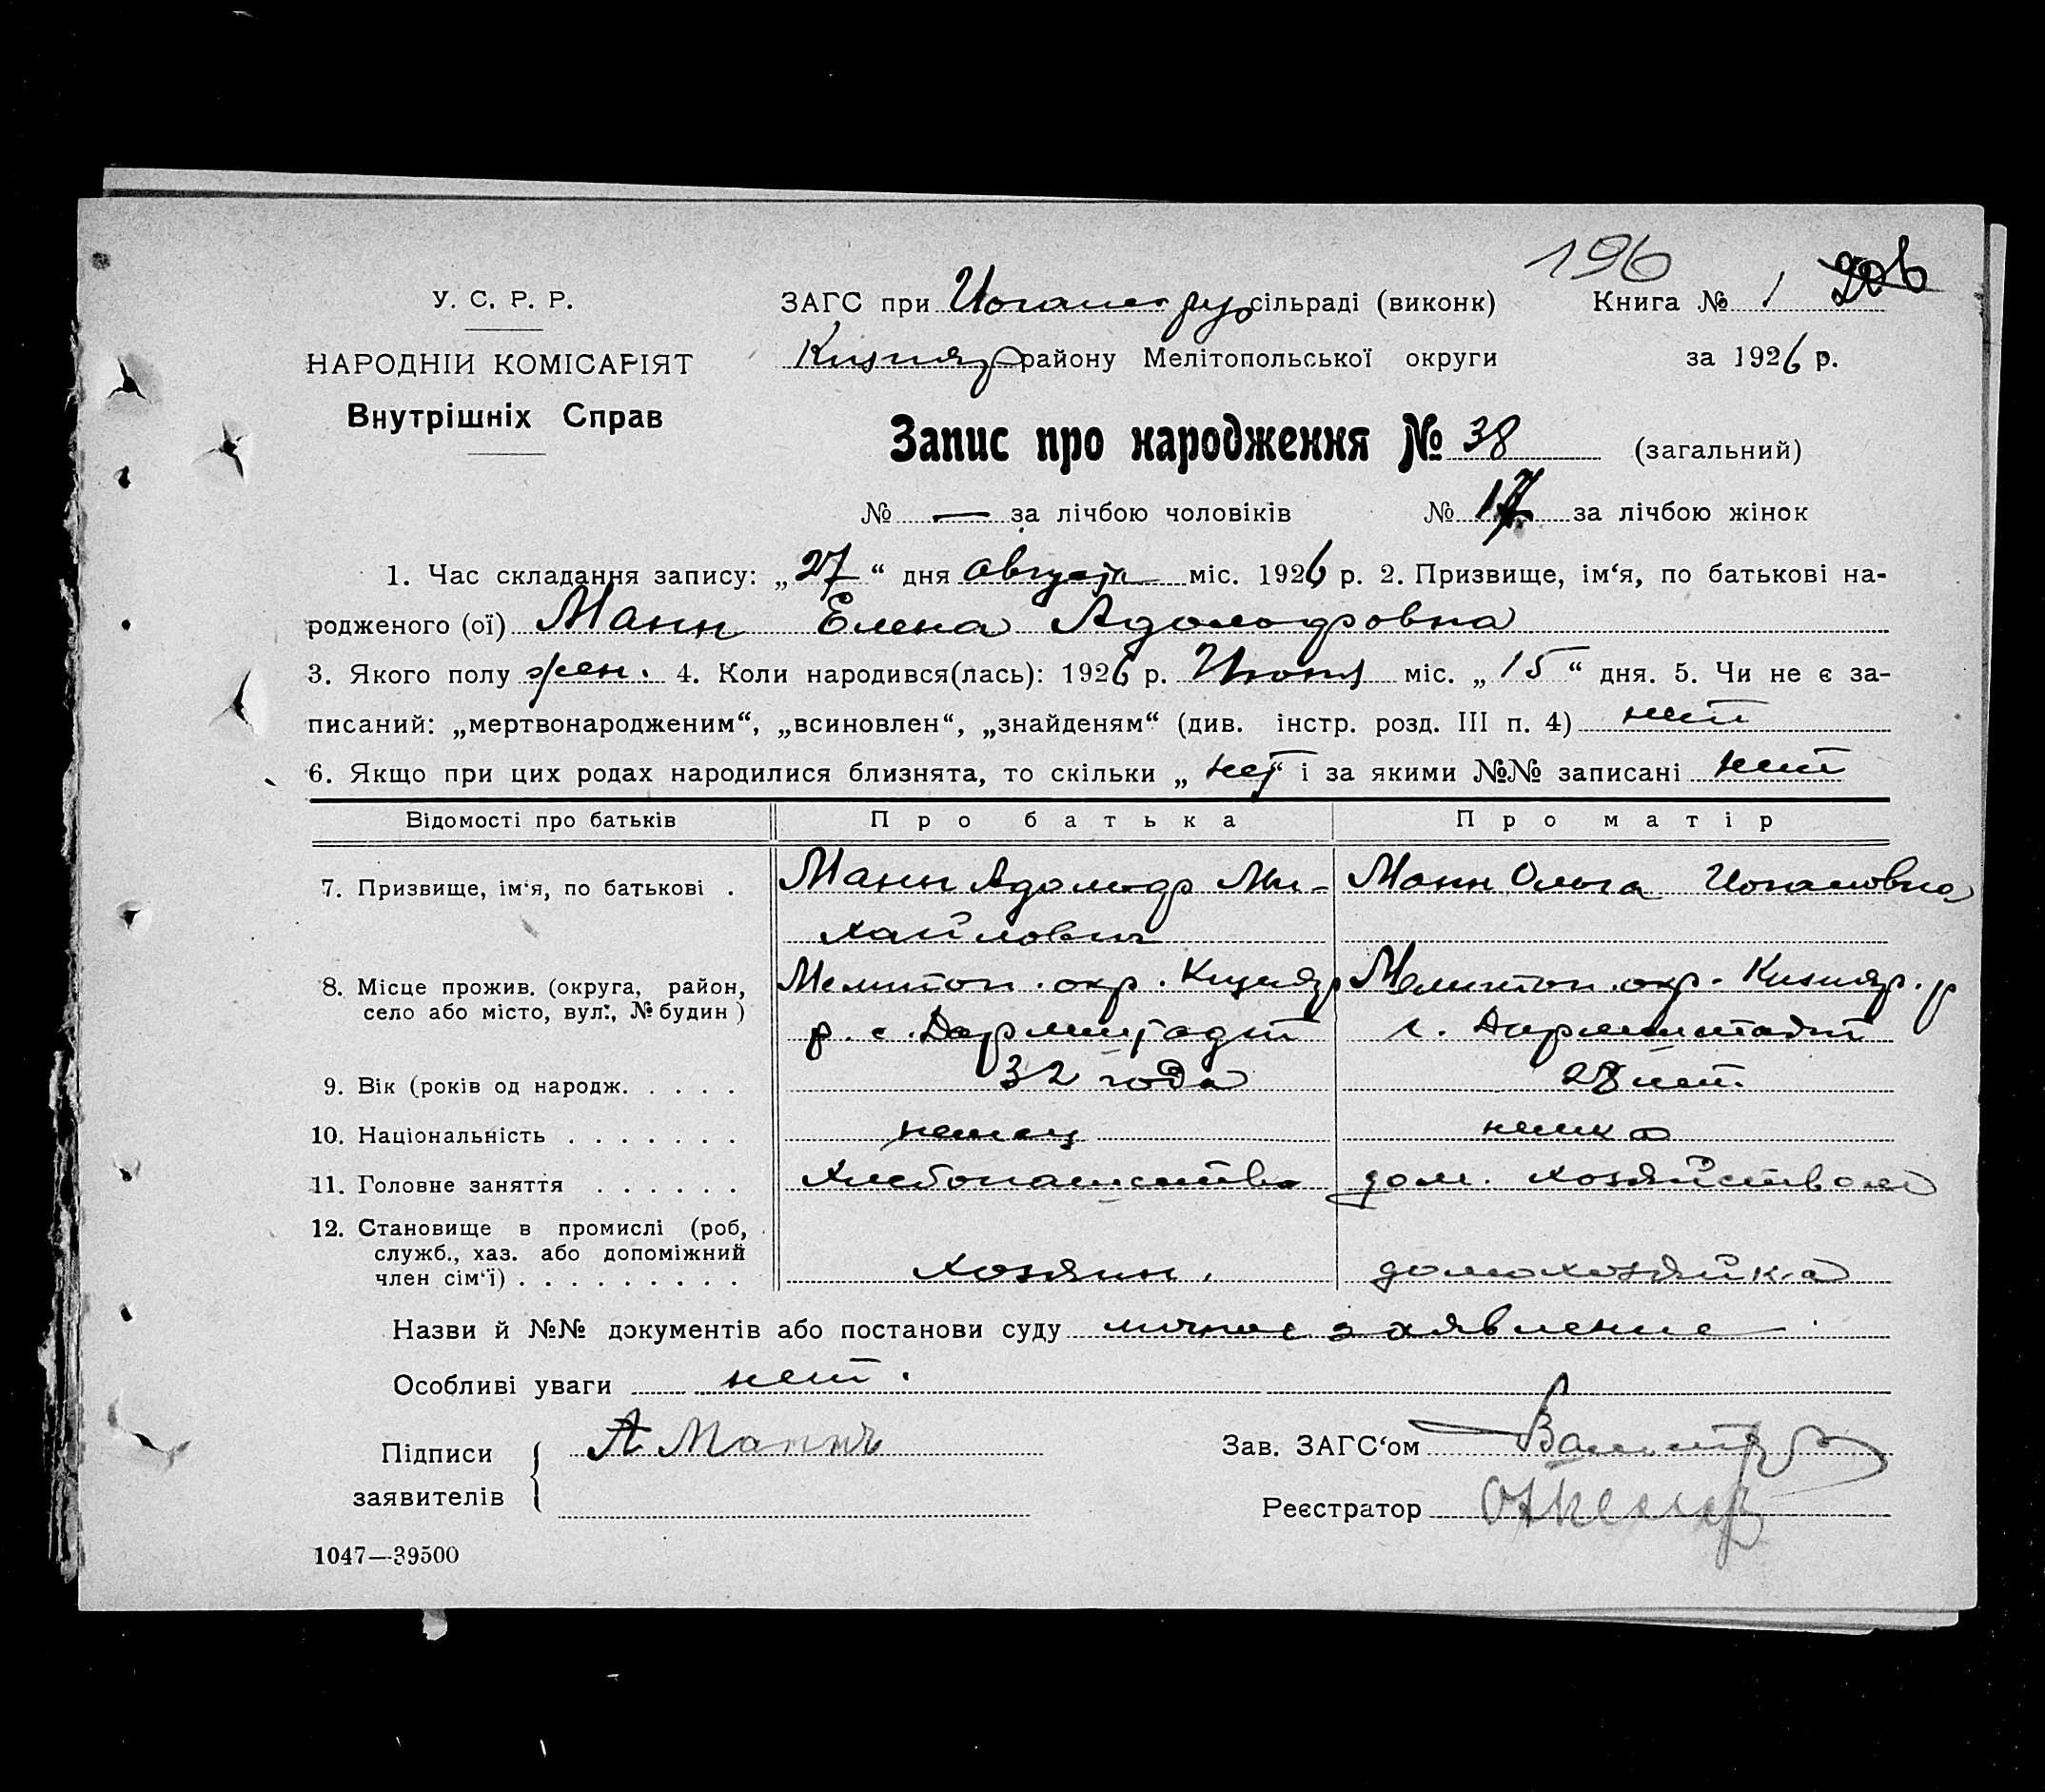 196
У. С. Р. Р. ЗАГС при Иоганесру сільраді (виконк) Книга № 1 206
НАРОДНІЙ КОМІСАРІЯТ Кизияр району Мелітопольської округи за 1926 р.
Внутрішніх Справ
Запис про народження № 38 (загальний)
№ — за лічбою чоловіків № 17 за лічбою жінок
1. Час складання запису: „27“ дня августа міс. 1926 р. 2. Призвище, ім‘я, по батькові на-
родженого (ої) Манн Елена Адольфовна
3. Якого полу жен. 4. Коли народився(лась): 1926 р. Июня міс. „15“ дня. 5. Чи не є за-
писаний: „мертвонародженим“, „всиновлен“, „знайденям“ (див. інстр. розд. III п. 4) нет
6. Якщо при цих родах народилися близнята, то скільки „нет“ і за якими №№ записані нет
Відомості про батьків Про батька Про матір
7. Призвище, ім‘я, по батькові . Манн Адольф Ми- Манн Ольга Иогановна
хайлович
8. Місце прожив. (округа, район, Мелитоп. окр. Кизияр Мелитоп. окр. Кизияр. р
село або місто, вул., № будин) р. с. Дармштадт с. Дармштадт
9. Вік (років од народж. . . . . 32 года 28 лет.
10. Національність . . . . . . . немец немка
11. Головне заняття . . . . . . Хлебопашество дом. хозяйством
12. Становище в промислі (роб,
служб., хаз. або допоміжний
член сім‘ї) . . . . . . . . . Хозяин. домохозяйка
Назви й №№ документів або постанови суду личное заявление
Особливі уваги нет.
Підписи А Манн Зав. ЗАГС‘ом
заявителів Реєстратор
1047—39500